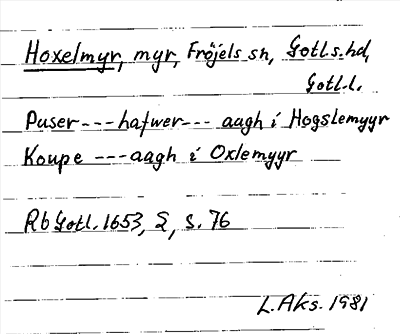 Hoxelmyr, myr, Fröjels sn, Gotl.s.hd,
Gotl.l.
Puser---hafwer--- aagh i Hogslemyyr
Koupe ---aagh i Oxlemyyr
Rb Gotl. 1653, 2, s. 76
L.Aks. 1981